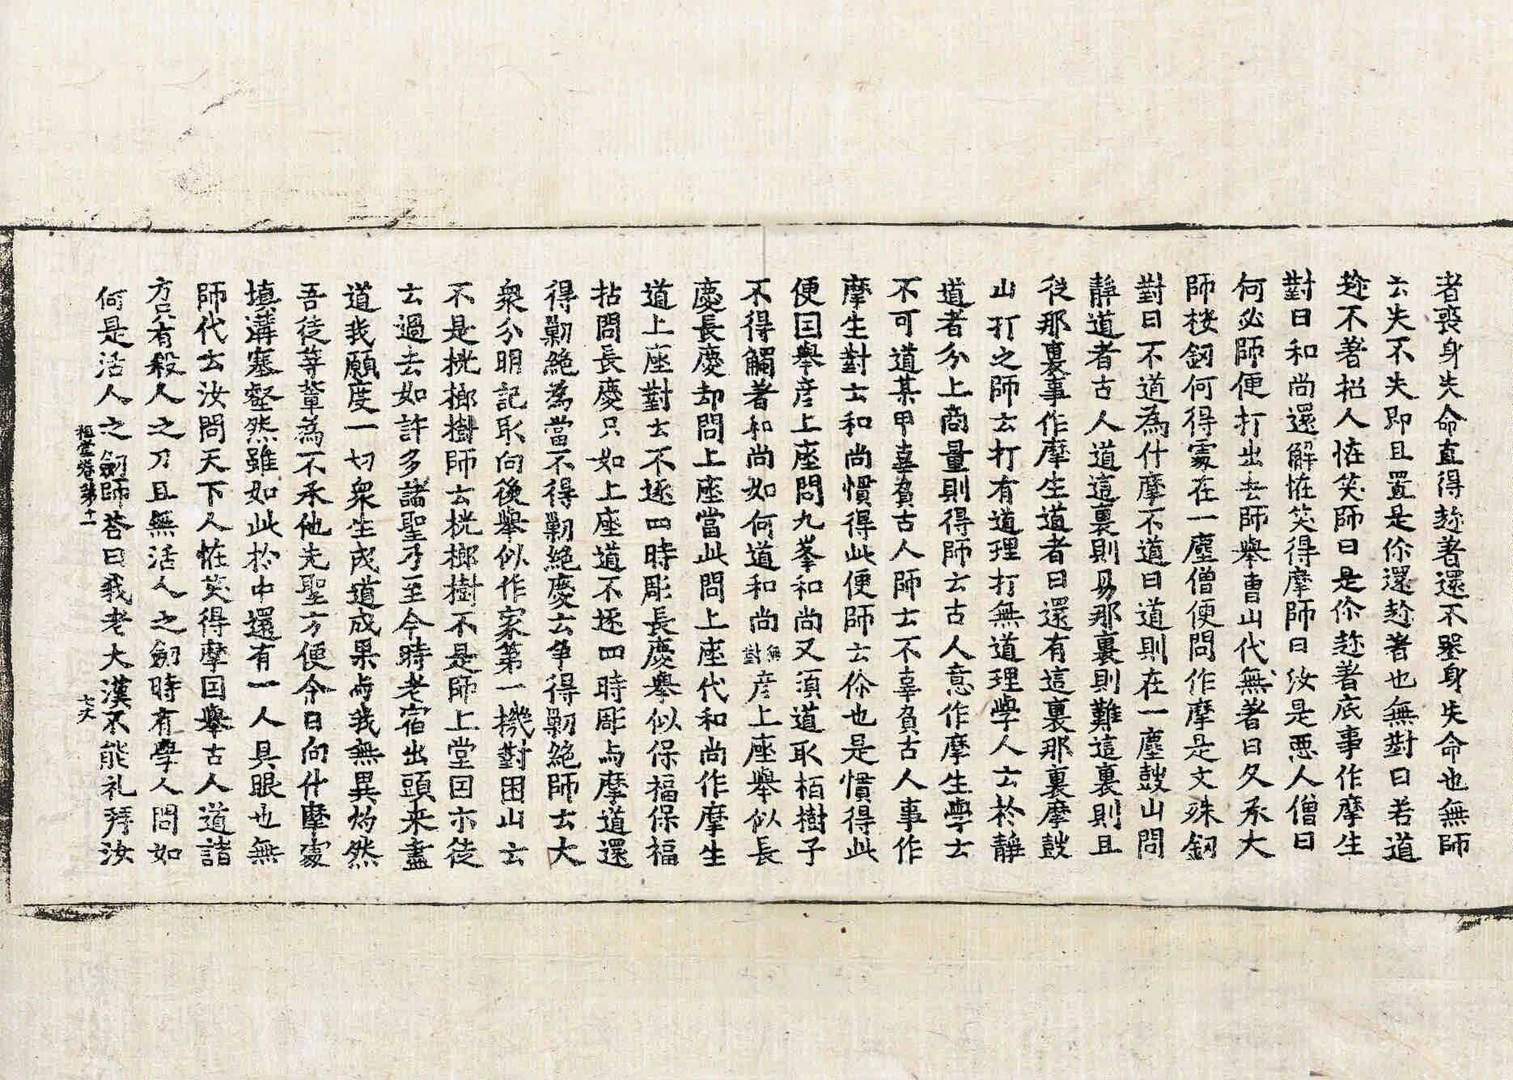 者喪身失命直得趂著還不喪身失命也無師
云失不失即且置是你還趂著也無對曰若道
趂不著招人恠笑師曰是你趂著底事作摩生
對曰和尚還解恠笑得摩師曰汝是悪人僧曰
何必師便打出去師舉曹山代無著曰久承大
師桉釼何得䖏在一塵僧便問作摩是文殊釼
對曰不道為什摩不道曰道則在一塵鼓山問
靜道者古人道這裏則易那裏則難這裏則且
從那裏事作摩生道者曰還有這裏那裏摩鼓
山打之師云打有道理打無道理學人云於靜
道者分上商量則得師云古人意作摩生學士
不可道某甲辜負古人師士不辜負古人事作
摩生對士和尚慣得此便師士你也是慣得此
便囙舉彦上座問九峯和尚又須道取栢樹子
不得觸著和尚如何道和尚無對彦上座舉似長
慶長慶却問上座當此問上座代和尚作摩生
道上座對士不逐四時彫長慶舉似保福保福
拈問長慶只如上座道不逐四時彫与摩道還
得勦絕為當不得勦絕慶云爭得勦絕師士大
衆分明記取向後舉似作家第一機對困山云
不是桄榔樹師云桄榔樹不是師上堂囙示徒
云過去如許多諸聖乃至今時老宿出頭来盡
道我願度一切衆生成道成果与我無異灼然
吾徒等輩為不承他先聖方便今日向什摩䖏
填溝塞壑然雖如此於中還有一人具眼也無
師代云汝問天下人恠笑得摩囙舉古人道諸
方只有殺人之刀且無活人之劒時有學人問如
何是活人之劒師荅曰我老大漢不能礼拜汝
祖堂卷第十一
七丈